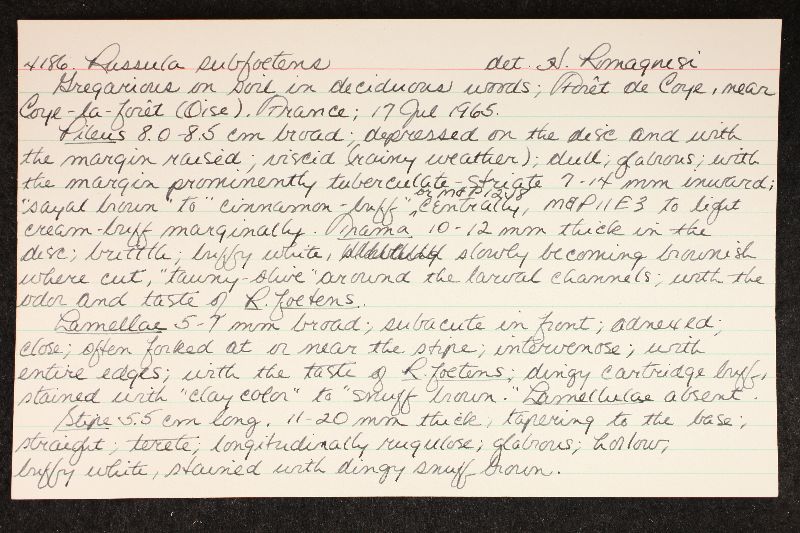 4186. Russula subfoetens det. H. Romagnesi
Gregarious on soil in deciduous woods; Forêt de Coye, near
Coye-la-forêt (Oise). France; 17 Jul 1965.
Pileus 8.0-8.5 cm broad; depressed on the disc and with
the margin raised; viscid (rainy weather); dull; glabrous; with
the margin prominently tuberculate striate 7-14 mm inward;
"sayal brown" to "cinnamon-buff" or M&P 12J8 centrally, M&P 11E3 to light
cream-buff marginally. Trama 10-12 mm thick in the
disc; brittle; buffy white, slowly becoming brownish
where cut, "tawny-olive" around the larval channels; with the
odor and taste of R. foetens.
Lamellae 5-7 mm broad; subacute in front; adnexed;
close; often forked at or near the stipe; intervenose; with
entire edges; with the taste of R. foetens; dingy cartridge buff,
stained with "clay color" to "snuff brown." Lamellulae absent.
Stipe 5.5 cm long, 11-20 mm thick; tapering to the base;
straight; terete; longitudinally rugulose; glabrous; hollow;
buffy white, stained with dingy snuff brown.